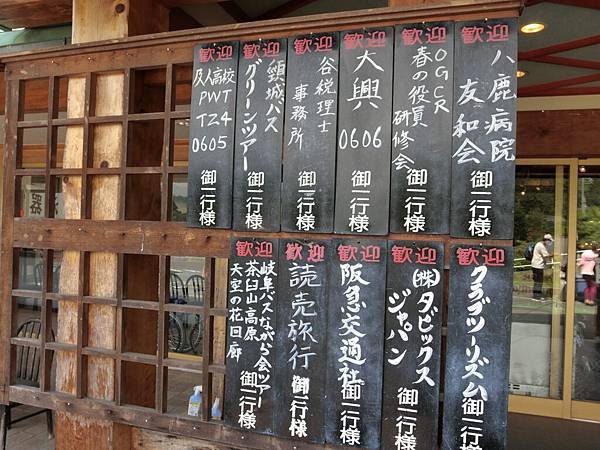 歓迎
八鹿病院
友和会
御一行様
歓迎
OGCR
春の役員
研修会
御一行様
歓迎
大興
0606
御一行様
歓迎
谷税理士
事務所
御一行様
歓迎
頸城バス
グリーンツアー
御一行様
歓迎
友人高校
PWT
TZ4
0605
御一行様
歓迎
クラブツーリズム
御一行様
歓迎
(株)タビックス
ジャパン
御一行様
歓迎
阪急交通社
御一行様
歓迎
読売旅行
御一行様
歓迎
岐阜バスながら会ツアー
茶臼山高原
天空の花回廊
御一行様